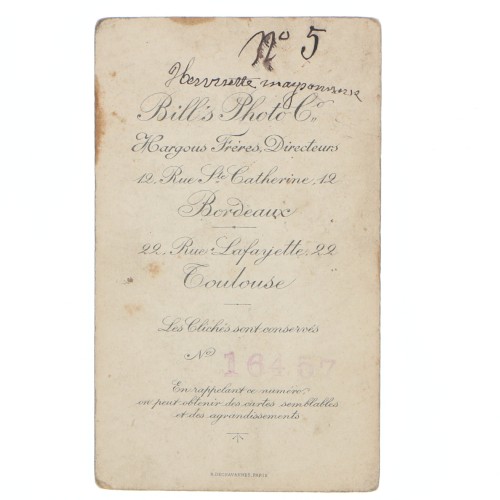 N° 5
Bill's Photo Cº
Hargous Frères, Directeurs
12, Rue Ste Catherine, 12
Bordeaux
22, Rue Lafayette, 22
Toulouse
Les Clichés sont conservés
No 16457
En rappelant ce numéro,
on peut obtenir des cartes semblables
et des agrandissements